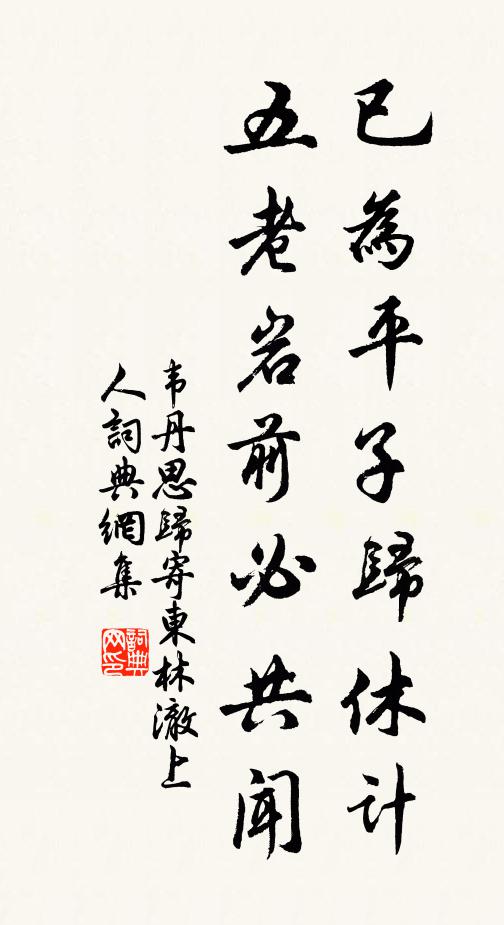 已為平子歸休计
五老岩前必共闻
韦丹思歸寄東林澈上
人詞典網集
詞典网印